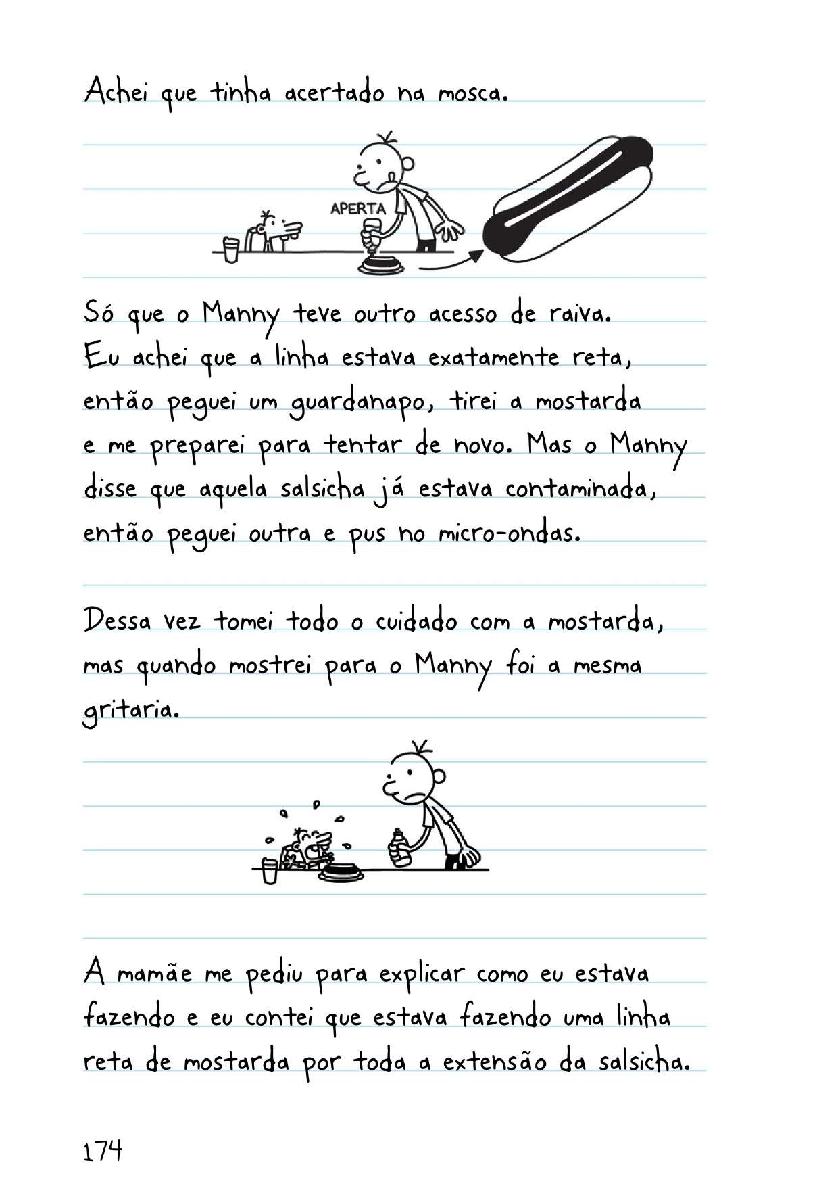 Achei que tinha acertado na mosca.
APERTA
Só que o Manny teve outro acesso de raiva.
Eu achei que a linha estava exatamente reta,
então peguei um guardanapo, tirei a mostarda
e me preparei para tentar de novo. Mas o Manny
disse que aquela salsicha já estava contaminada,
então peguei outra e pus no micro-ondas.
Dessa vez tomei todo o cuidado com a mostarda,
mas quando mostrei para o Manny foi a mesma
gritaria.
A mamãe me pediu para explicar como eu estava
fazendo e eu contei que estava fazendo uma linha
reta de mostarda por toda a extensão da salsicha.
174